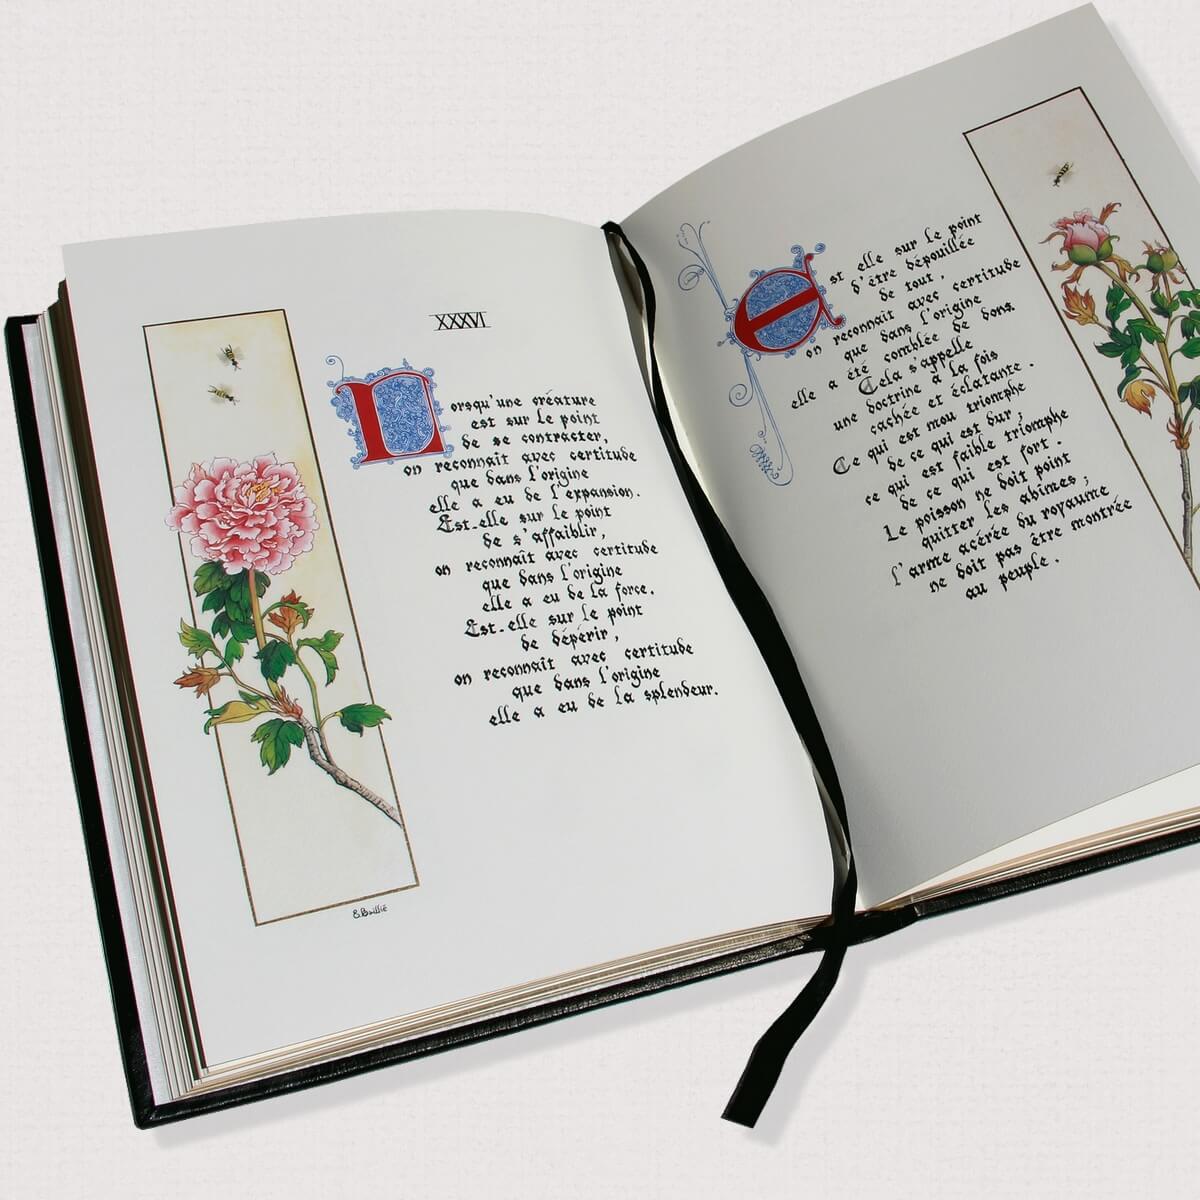 XXXVI
Lorsqu'une créature
est sur le point
de se contracter,
on reconnaît avec certitude
que dans l'origine
elle a eu de l'expansion.
Est-elle sur le point
de s'affaiblir,
on reconnaît avec certitude
que dans l'origine
elle a eu de la force.
Est-elle sur le point
de dépérir,
on reconnaît avec certitude
que dans l'origine
elle a eu de la splendeur.
E. Baillie
Est elle sur le point
d'être dépouillée
de tout,
on reconnaît avec certitude
que dans l'origine
elle a été comblée de dons
Cela s'appelle
une doctrine à la fois
cachée et éclatante.
Ce qui est mou triomphe
de ce qui est dur;
ce qui est faible triomphe
de ce qui est fort.
Le poisson ne doit point
quitter les abîmes;
l'arme acérée du royaume
ne doit pas être montrée
au peuple.